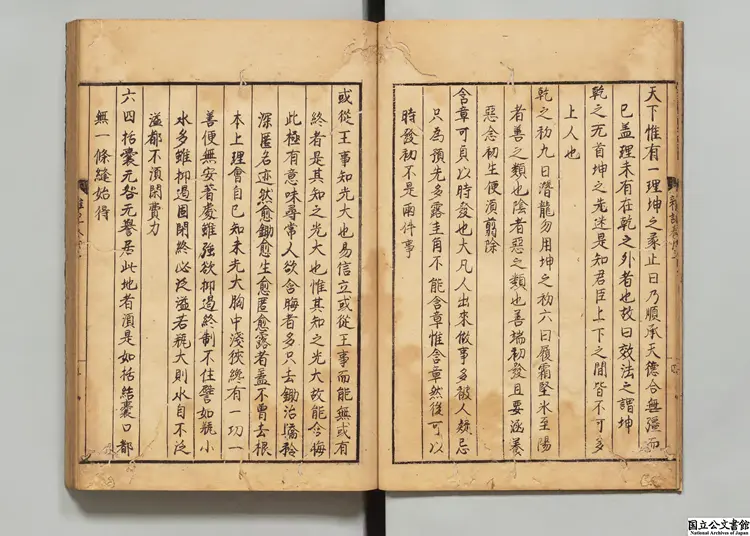 天下惟有一理坤之彖止曰乃順承天德合無疆而
已盖理未有在乾之外者也故曰效法之謂坤
乾之无首坤之先迷是知君臣上下之間皆不可多
上人也
乾之初九曰潛龍勿用坤之初六曰履霜堅氷至陽
者善之類也陰者惡之類也善端初發且要涵養
惡念初生便湏剪除
含章可貞以時發也大凡人出來做事多被人疑忌
只為預先多露圭角不能含章惟含章然後可以
時發初不是兩件事
或從王事知光大也易信立或從王事而能無或有
終者是其知之光大也惟其知之光大故能含晦
此極有意味尋常人欲含晦者多只去鋤治驕矜
深匿名迹然愈鋤愈生愈匿愈露者盖不曾去根
本上理會自己知未光大胸中淺狹終有一功一
善便無安著處雖強欲抑遏終制不住譬如瓶小
水多雖抑遏固閉終必泛溢若瓶大則水自不泛
溢都不湏閑費力
六四括囊无咎无譽居此地者湏是如括結囊口都
無一條縫始得
国立公文書館
National Archives of Japan